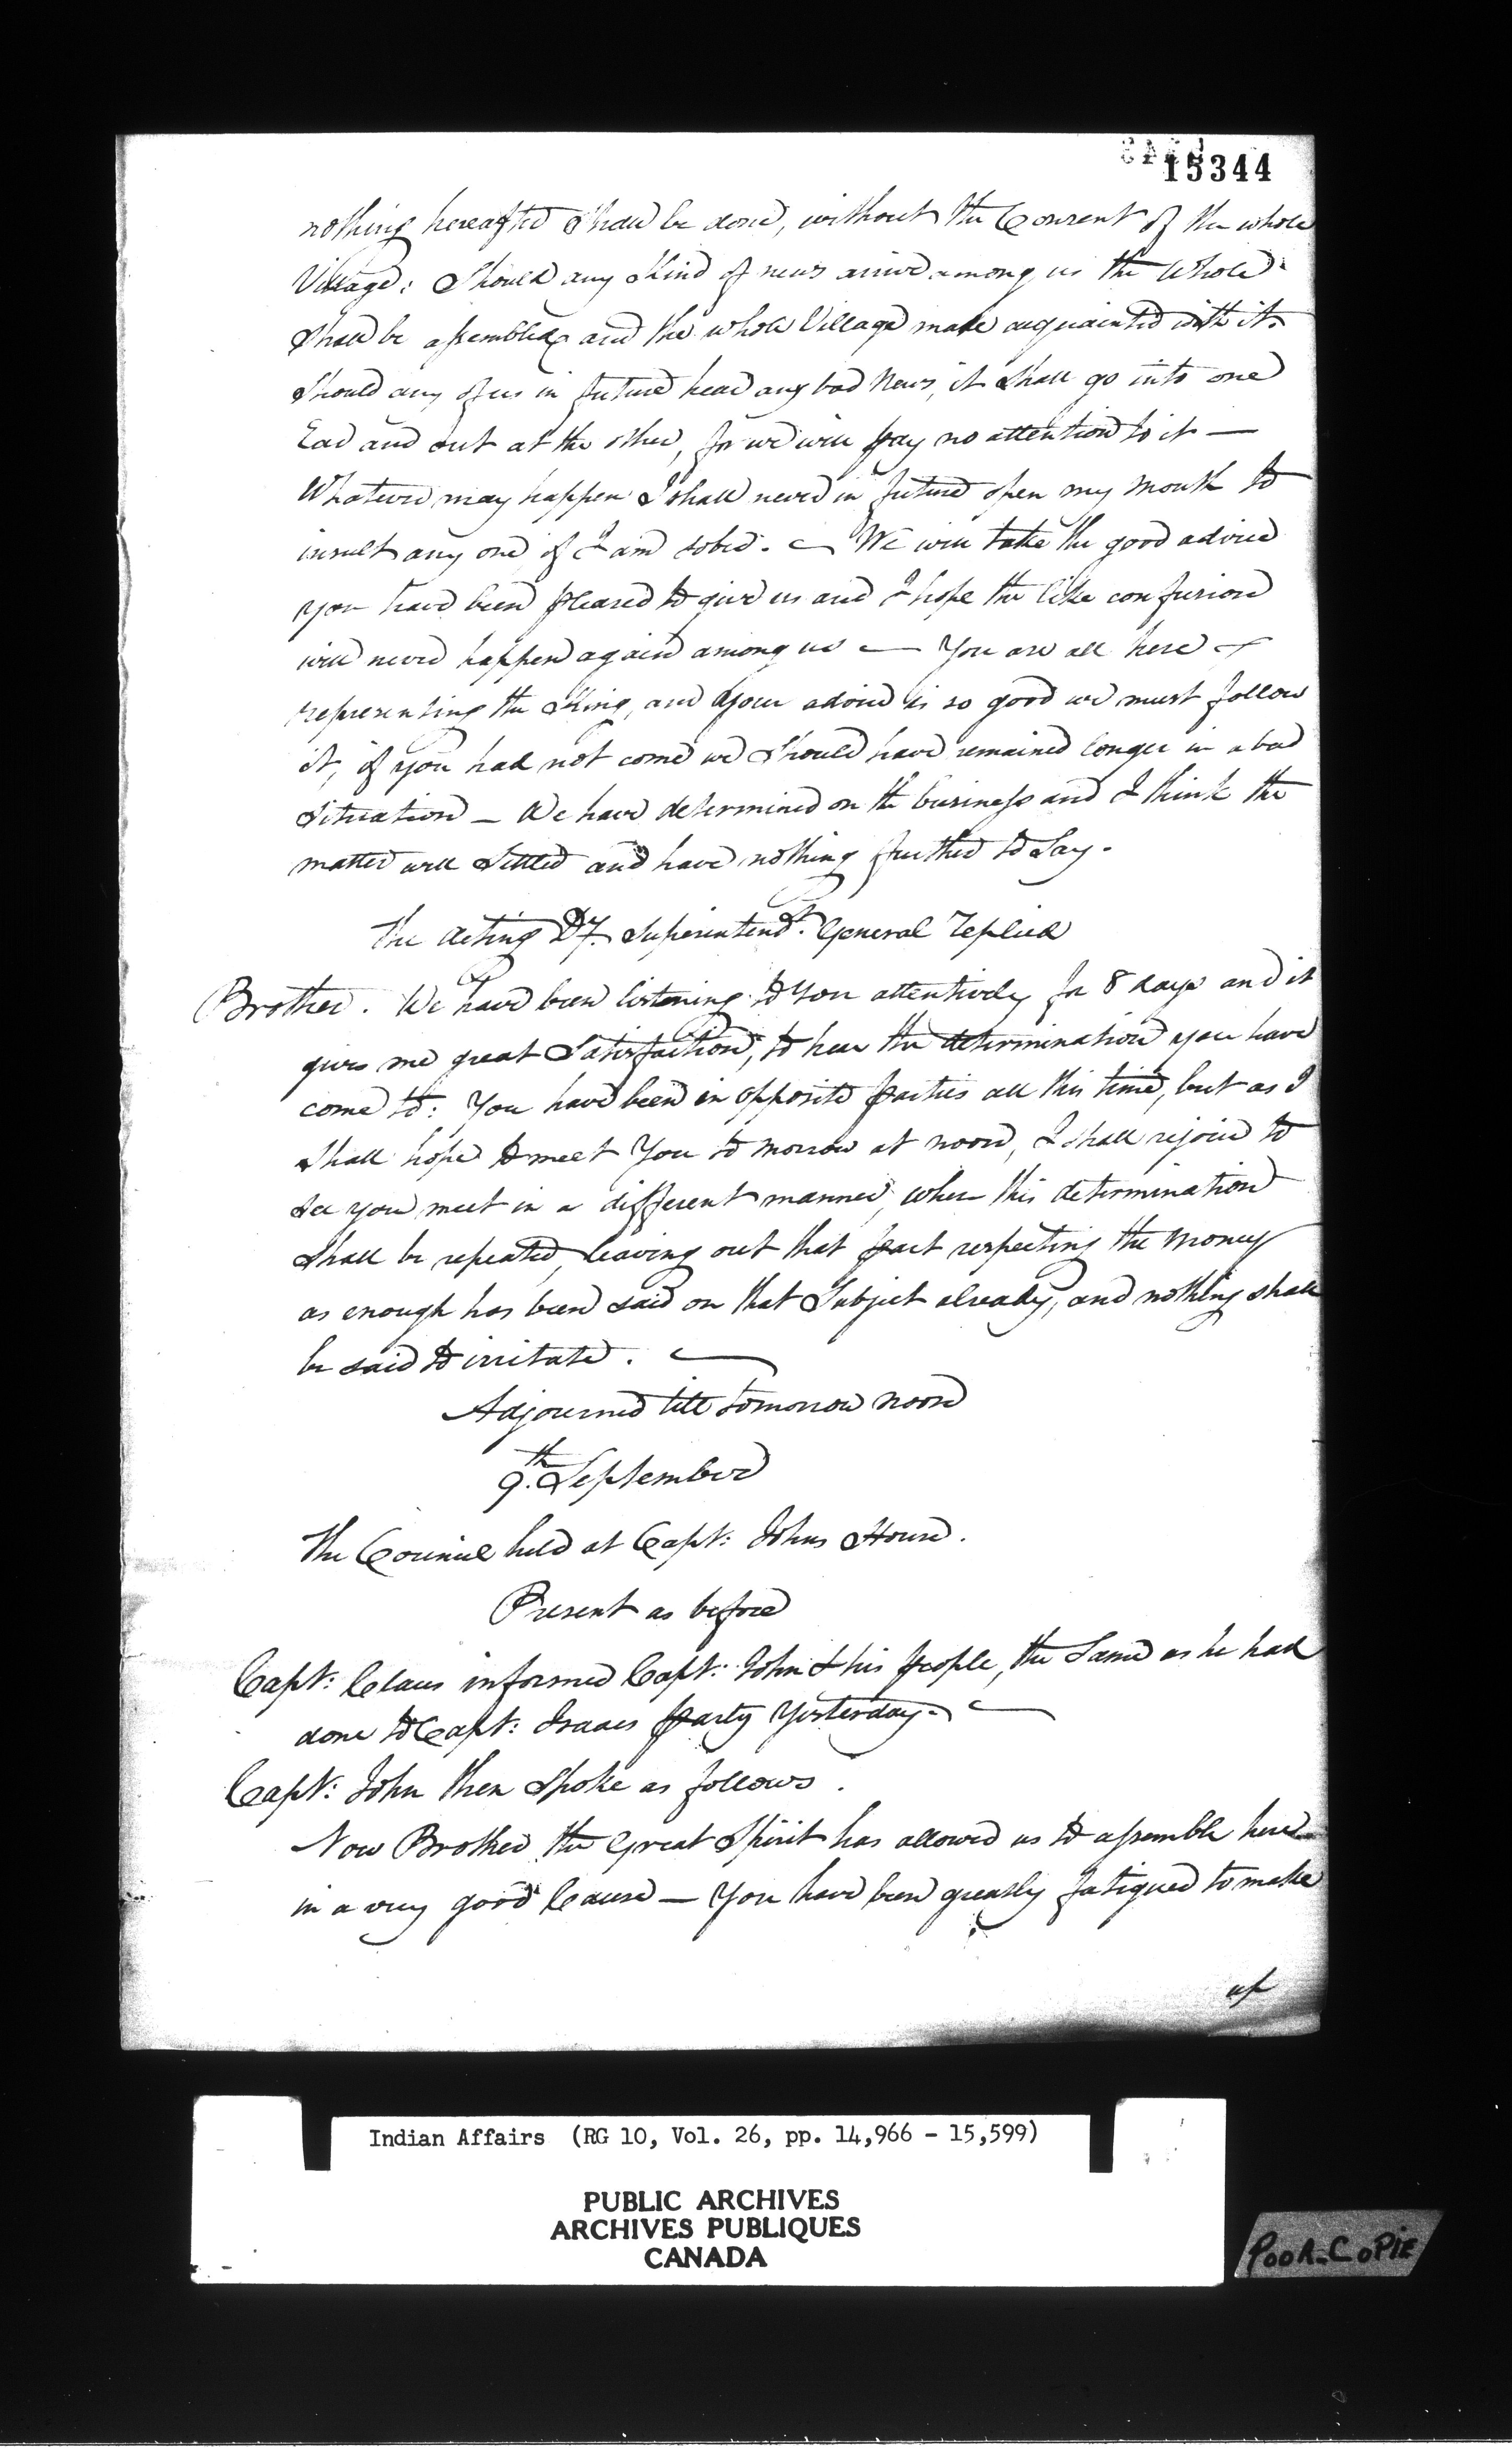 15344
nothing hereafter Shall be done, without the Consent of the whole
Village: Should any Kind of news arrive among us the Whole
Shall be assembled and the whole Village made acquainted with it.
Should any of us in future hear any bad News, it Shall go into one
Ear and out at the other, for we will pay no attention to it —
Whatever may happen I shall never in future open my Mouth to
insult any one if I am sober. — We will take the good advice
you have been pleased to give us and I hope the like confusion
will never happen again among us — You are all here
representing the King, and Your advice is so good we must follow
it, if you had not come we Should have remained longer in a bad
Situation — We have determined on the business and I think the
matter well Settled and have nothing further to Say.
The Acting Dy. Superintendt. General Replied
Brother. We have been listening to You attentively for 8 days and it
gives me great Satisfaction, to hear the determination you have
come to: You have been in opposite parties all this time, but as I
Shall hope to meet You to morrow at noon, I shall rejoice to
see you meet in a different manner, when this determination
Shall be repeated, leaving out that part respecting the Money
as enough has been said on that Subject already, and nothing shall
be said to irritate. —
Adjourned till tomorrow noon
9.th September
The Council held at Capt: Johns House.
Present as before
Capt: Claus informed Capt: John & his people, the Same as he had
done to Capt: Isaacs party Yesterday. —
Capt: John then Spoke as follows.
Now Brother the Great Spirit has allowed us to assemble here
in a very good Cause — You have been greatly fatigued to make
up
Indian Affairs (RG 10, Vol. 26, pp. 14,966 - 15,599)
PUBLIC ARCHIVES
ARCHIVES PUBLIQUES
CANADA
POOR-COPIE